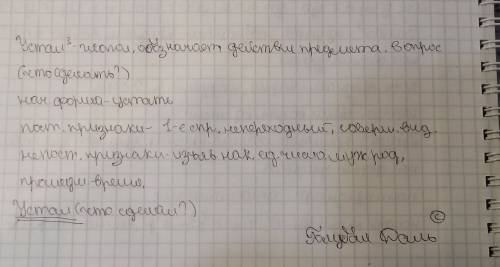 Устал³ - глагол, обозначает действие предмета. вопрос
(что сделать?)
нач форма - устать
пост. признаки - 1-е спр, непереходный, соверш. вид.
непост. признаки - изъяв нак, ед. число, муж род,
прошедш. время.
Устал (что сделал?)
©
Даль